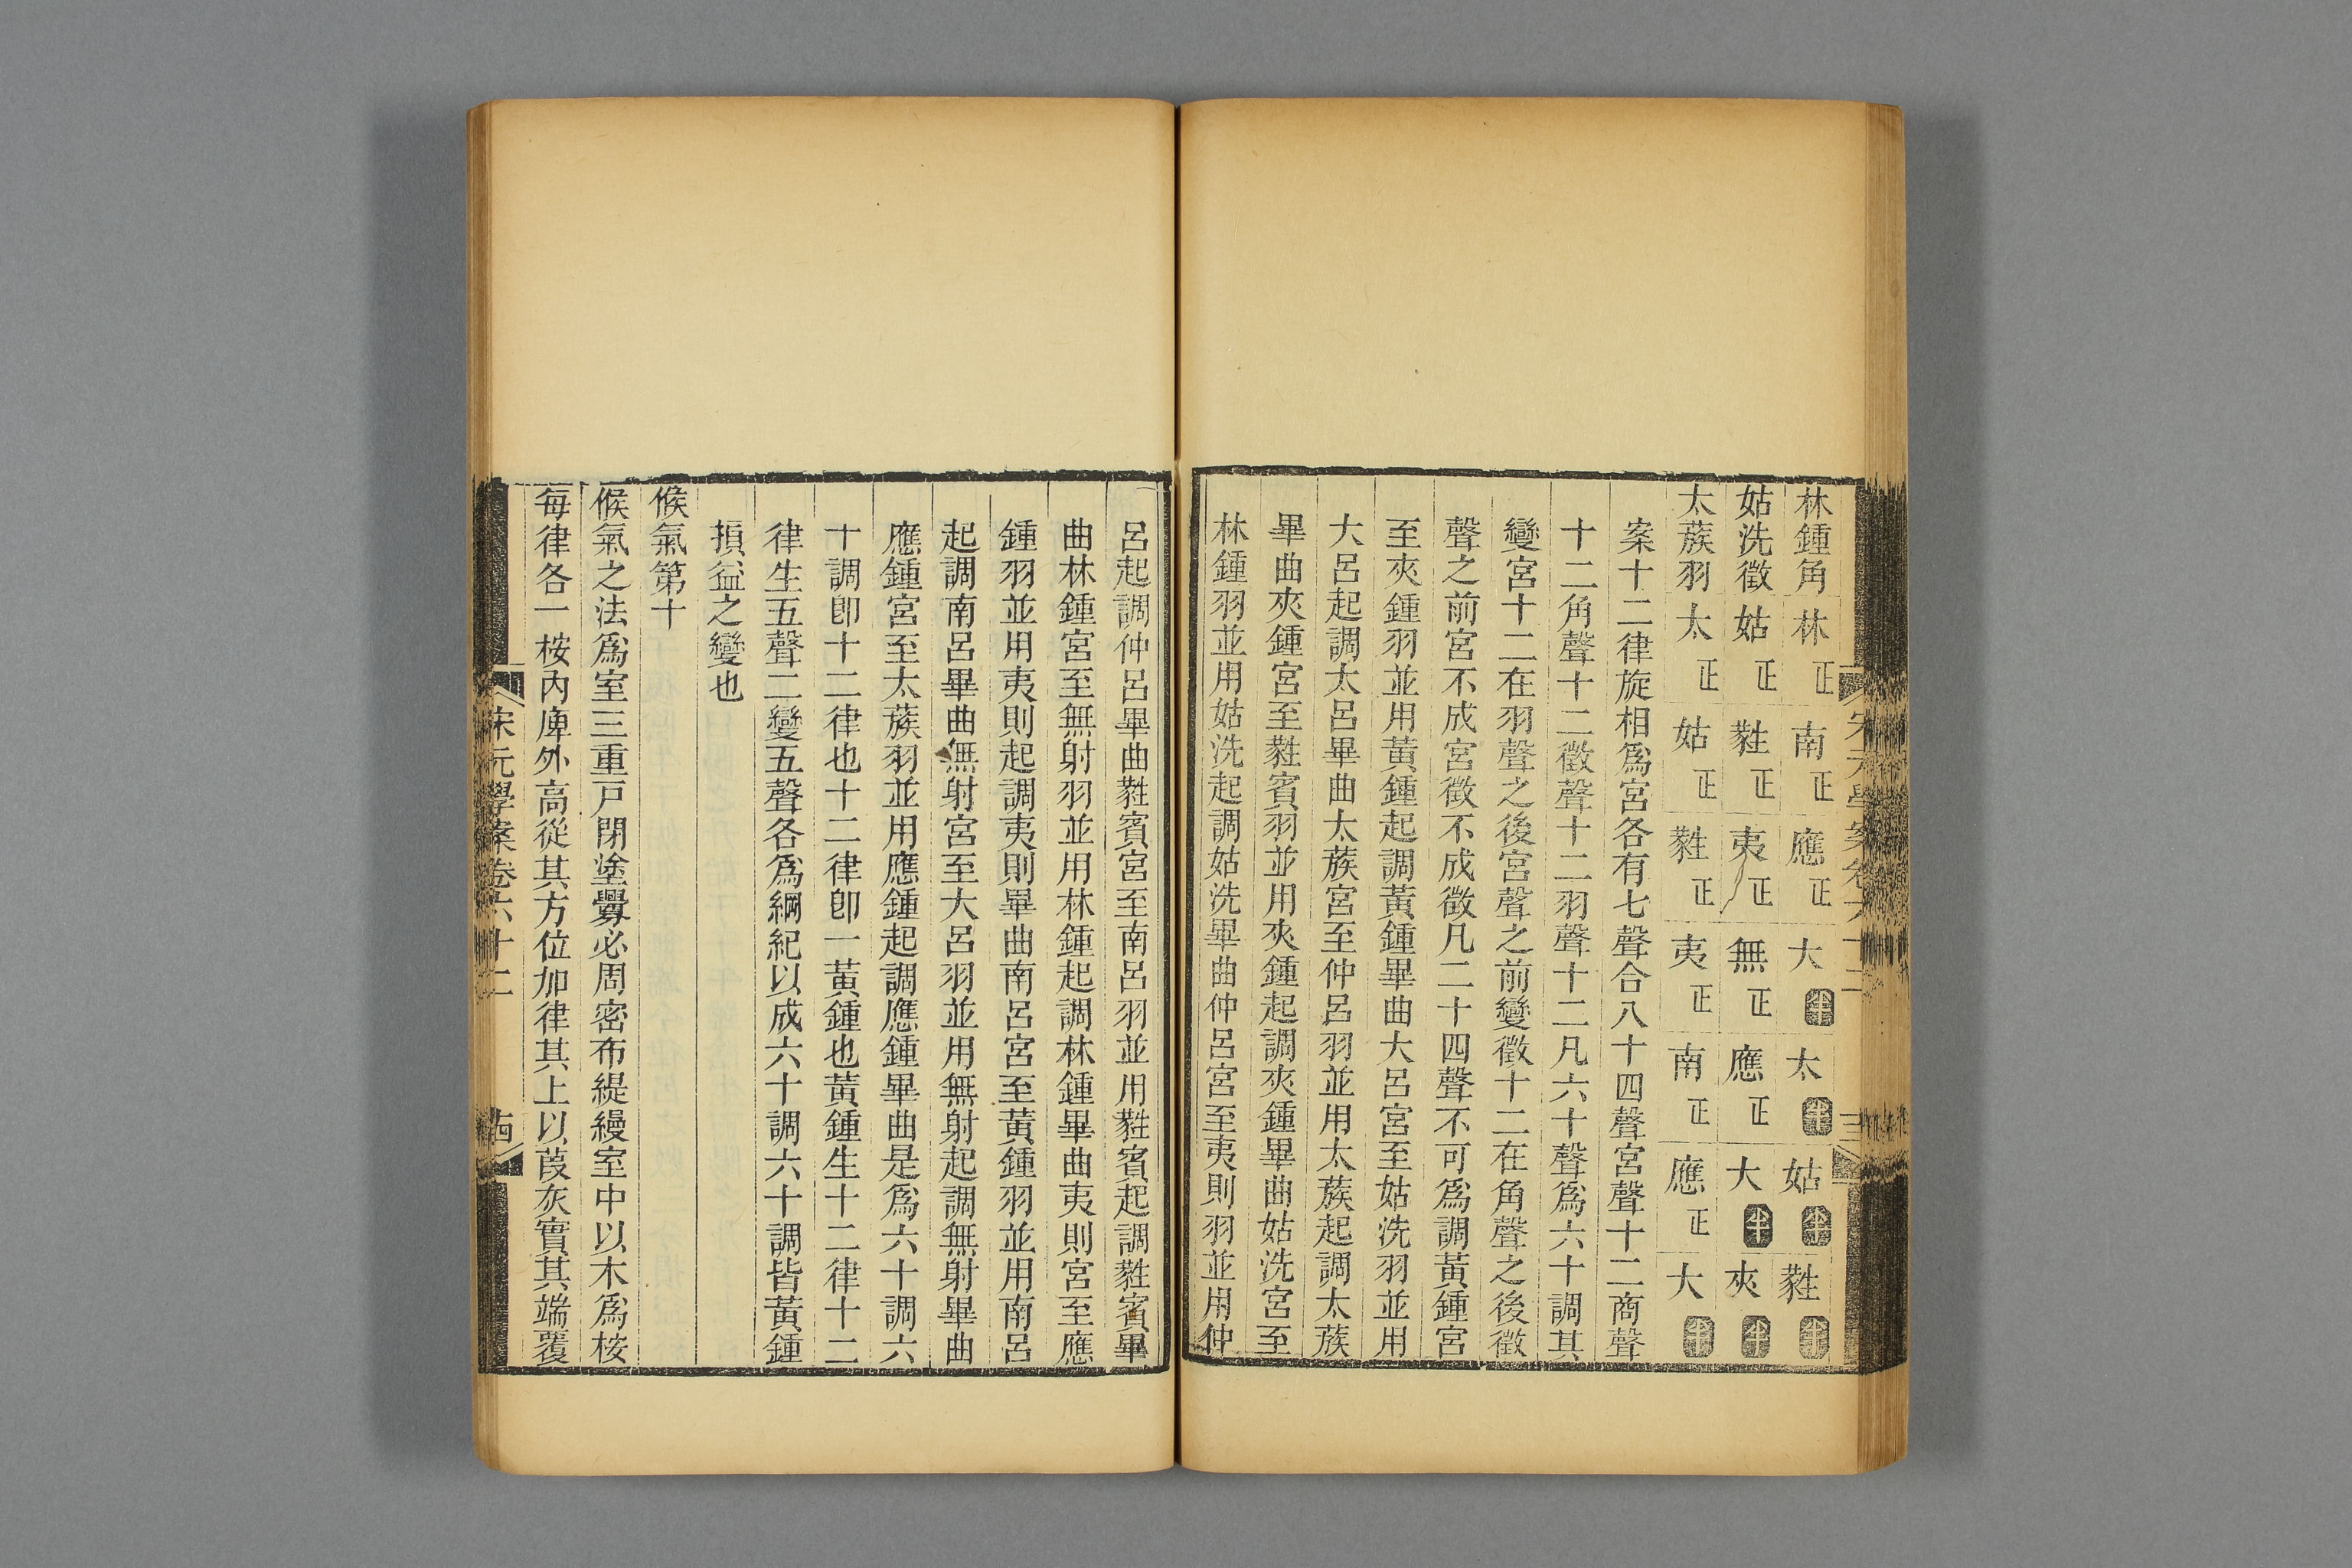 林鍾角林正南正應正大半太半姑半蕤半
姑洗徵姑正蕤正夷正無正應正大半夾半
太蔟羽太正姑正蕤正夷正南正應正大半
案十二律旋相爲宮各有七聲合八十四聲宮聲十二商聲
十二角聲十二徵聲十二羽聲十二凡六十聲爲六十調其
變宮十二在羽聲之後宮聲之前變徵十二在角聲之後徵
聲之前宮不成宮徵不成徵凡二十四聲不可爲調黃鍾宮
至夾鍾羽並用黃鍾起調黃鍾畢曲大呂宮至姑洗羽並用
大呂起調太呂畢曲太蔟宮至仲呂羽並用太蔟起調太蔟
畢曲夾鍾宮至蕤賓羽並用夾鍾起調夾鍾畢曲姑洗宮至
林鍾羽並用姑洗起調姑洗畢曲仲呂宮至夷則羽並用仲
呂起調仲呂畢曲蕤賓宮至南呂羽並用蕤賓起調蕤賓畢
曲林鍾宮至無射羽並用林鍾起調林鍾畢曲夷則宮至應
鍾羽並用夷則起調夷則畢曲南呂宮至黃鍾羽並用南呂
起調南呂畢曲無射宮至大呂羽並用無射起調無射畢曲
應鍾宮至太蔟羽並用應鍾起調應鍾畢曲是爲六十調六
十調卽十二律也十二律卽一黃鍾也黃鍾生十二律十二
律生五聲二變五聲各爲綱紀以成六十調六十調皆黃鍾
損益之變也
候氣第十
候氣之法爲室三重戸閉塗釁必周密布緹縵室中以木爲桉
每律各一桉內庳外高從其方位加律其上以葭灰實其端覆
宋元學案卷六十二
古